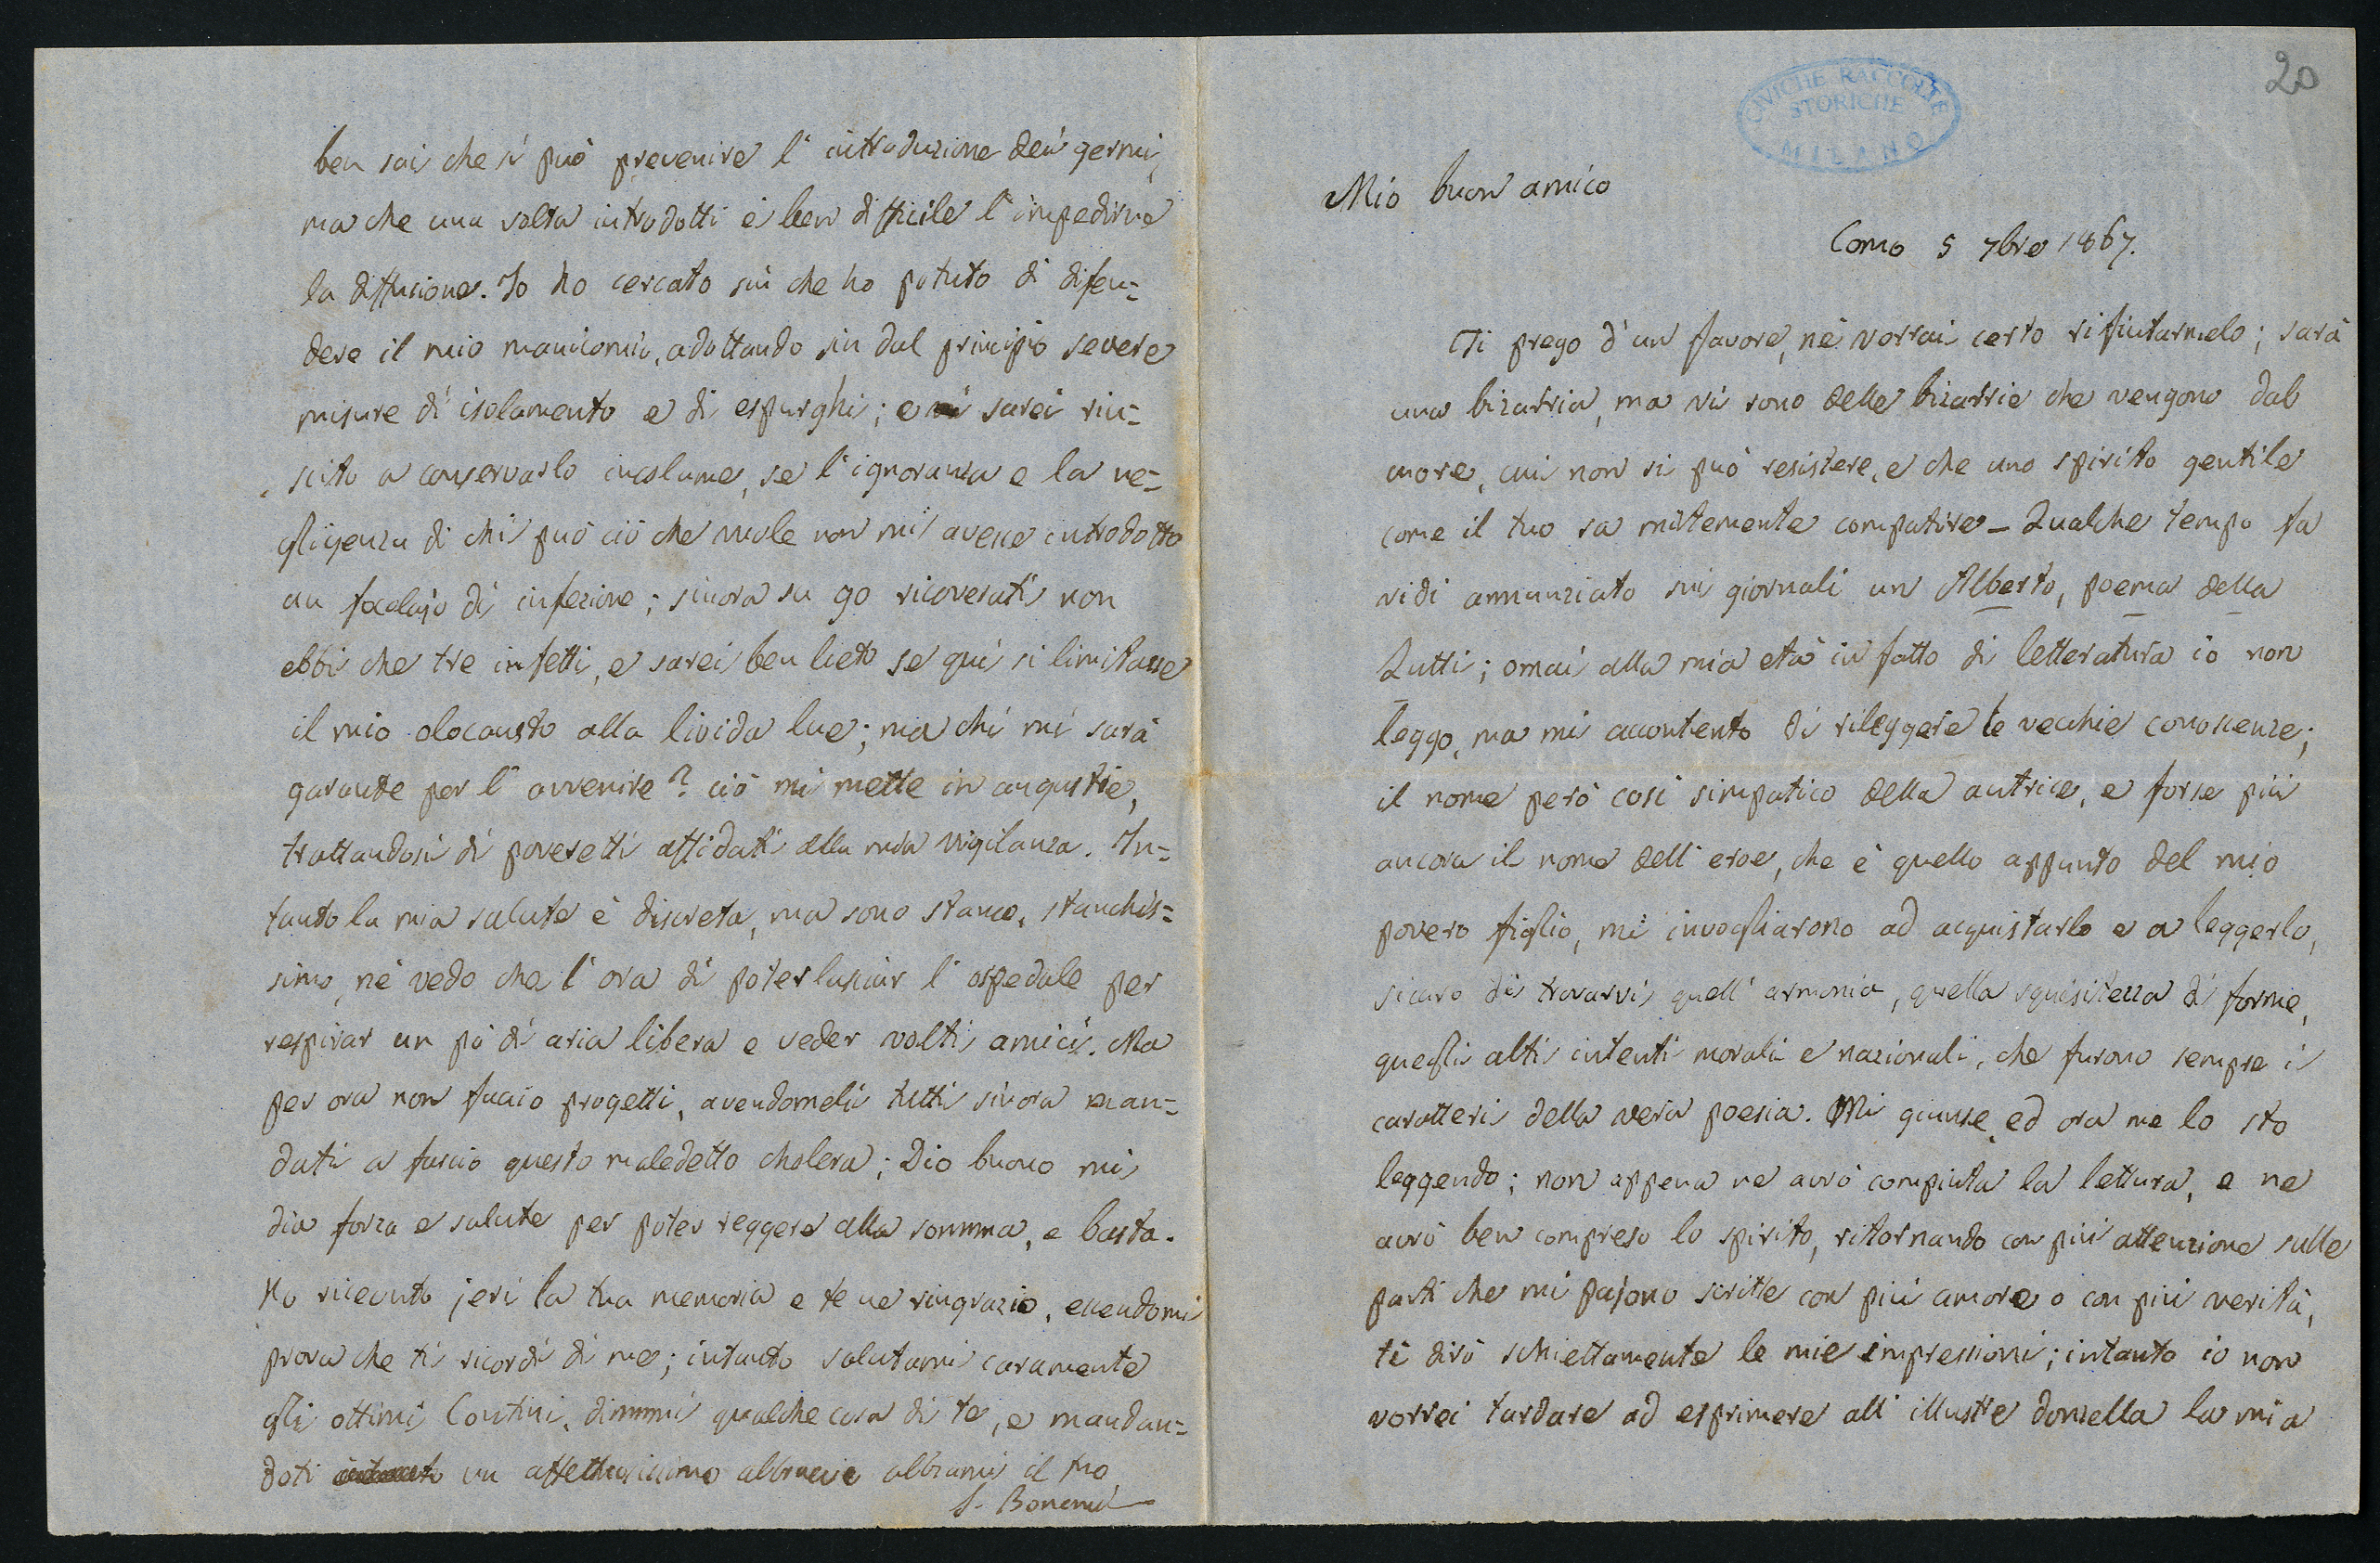 20
CIVICHE RACCOLTE
STORICHE
MILANO
Mio buon amico
Como 5 7bre 1867.
Ti prego d'un favore, nè vorrai certo rifiutarmelo; sarà
una bizarria, ma vi sono delle bizarrie che vengono dal
cuore, cui non si può resistere, e che uno spirito gentile
come il tuo sa mitemente compatire - Qualche tempo fa
vidi annunziato sui giornali un Alberto, poema della
Zutti; omai alla mia età in fatto di letteratura io non
leggo, ma mi accontento di rileggere le vecchie conoscenze;
il nome però così simpatico della autrice, e forse più
ancora il nome dell'eroe, che è quello appunto del mio
povero figlio, mi invogliarono ad acquistarlo e a leggerlo,
sicuro di trovarvi quell'armonia, quella squisitezza di forme,
quegli alti intenti morali e nazionali, che furono sempre i
caratteri della vera poesia. Mi giunse, ed ora me lo sto
leggendo; non appena ne avrò compiuta la lettura, e ne
avrò ben compreso lo spirito, ritornando con più attenzione sulle
parti che mi pajono scritte con più amore o con più verità,
ti dirò schiettamente le mie impressioni; intanto io non
vorrei tardare ad esprimere all'illustre donzella la mia
ben sai che si può prevenire l'introduzione dei germi,
ma che una volta introdotti è ben difficile l'impedirne
la diffusione. Io ho cercato sin che ho potuto di difen=
dere il mio manicomio, adottando sin dal principio severe
misure di isolamento e di espurghi; e sarei riu=
scito a conservarlo incolume, se l'ignoranza e la ne=
gligenza di chi può ciò che vuole non mi avesse introdotto
un focolajo di infezione; sinora su 90 ricoverati non
ebbi che tre infetti, e sarei ben lieto se qui si limitasse
il mio olocausto alla livida lue; ma chi mi sarà
garante per l'avvenire? ciò mi mette in angustie,
trattandosi di poveretti affidati alla mia vigilanza. In=
tanto la mia salute è discreta, ma sono stanco, stanchis=
simo, nè vedo che l'ora di poter lasciar l'ospedale per
respirar un pò di aria libera e veder volti amici. Ma
per ora non faccio progetti, avendomeli tutti sinora man=
dati a fascio questo maledetto cholera; Dio buono mi
dia forza e salute per poter reggere alla somma, e basta.
Ho ricevuto jeri la tua memoria e te ne ringrazio, essendomi
prova che ti ricordi di me; intanto salutami caramente
gli ottimi Contini, dimmi qualche cosa di te, e mandan=
doti un affettuosissimo abbraccio abbiami il tuo
S. Bonomi